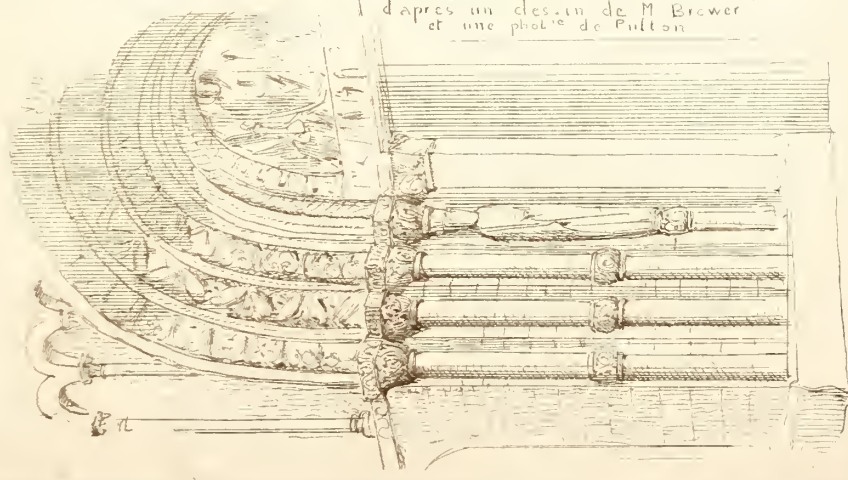 d'apres un dessin de M Brewer
et une photie de Pulton